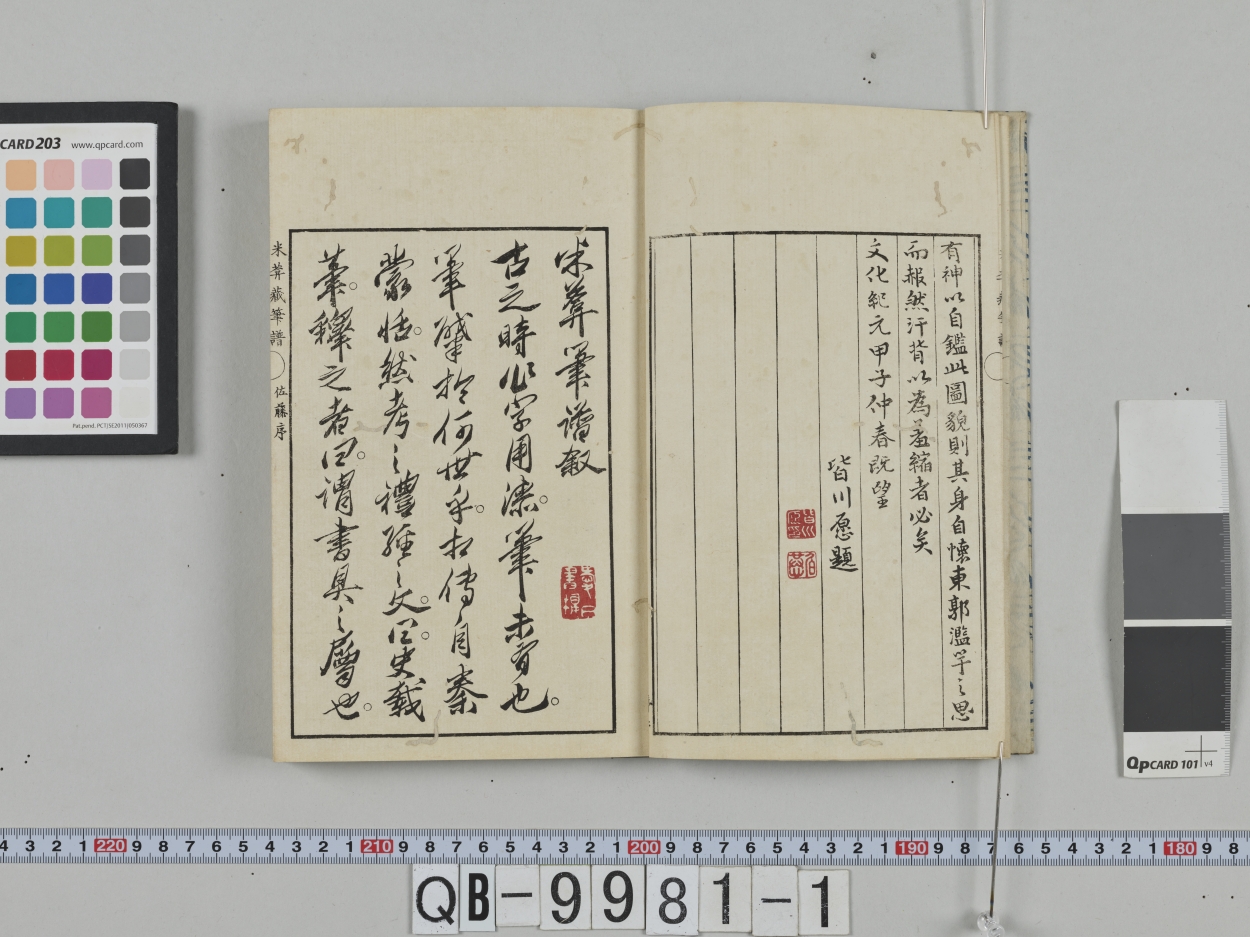 有神以自鑑此圖貌則其身自懷東郭濫竽之思
而赧然汗背以為羞縮者必矣
文化紀元甲子仲春既望
皆川愿題
米葊筆譜敘
古之時作字用漆。筆未有也。
筆肇於何世乎。相傳自秦
蒙恬。然考之禮經之文。曰史載
筆。釋之者曰。謂書具之屬也。
米葊藏筆譜
佐藤序
CARD 203 www.qpcard.com
Pat.pend. PCT/SE2011/050367
QPCARD 101 v4
4 3 2 1 220 9 8 7 6 5 4 3 2 1 210 9 8 7 6 5 4 3 2 1 200 9 8 7 6 5 4 3 2 1 190 9 8 7 6 5 4 3 2 1 180 9 8
QB-9981-1